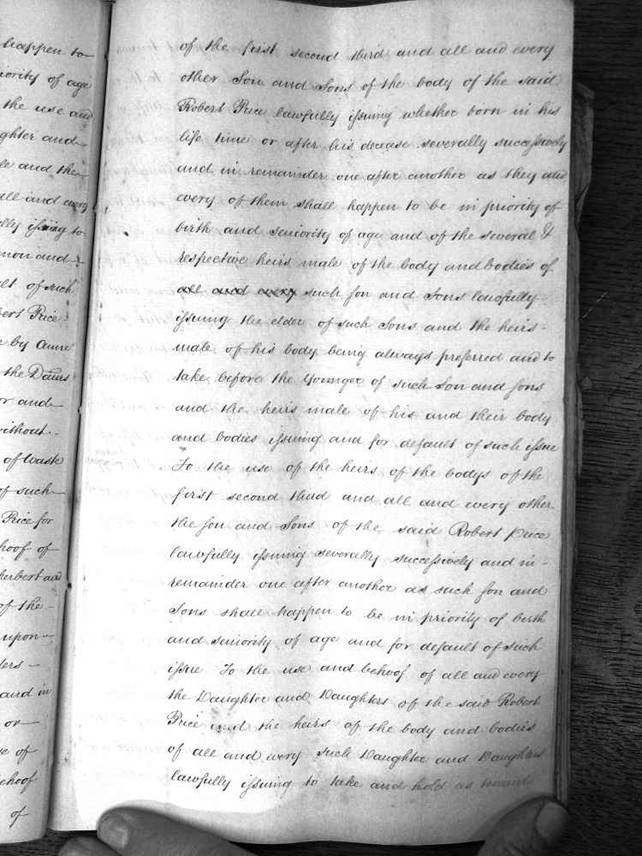 happen to
iority of age
the use and
ghter and
le and the
all and every
lly issuing to
mon and
lt of such
bert Price
e by Anne
the Dauns
or and
without
of Waste
of such
Price for
hoof of
Herbert and
of the
upon
ders
and in
or
se of
ehoof
of
of the first second third and all and every
other Son and Sons of the body of the said
Robert Price lawfully issuing whether born in his
life time or after his decease severally successively
and in remainder one after another as they and
every of them shall happen to be in priority of
birth and seniority of age and of the several &
respective heirs male of the body and bodies of
all and every such son and Sons lawfully
issuing the elder of such Sons and the heirs
male of his body being always preferred and to
take before the Younger of such Son and Sons
and the heirs male of his and their body
and bodies issuing and for default of such issue
To the use of the heirs of the bodys of the
first second third and all and every other
the son and Sons of the said Robert Price
lawfully issuing severally successively and in
remainder one after another as such son and
Sons shall happen to be in priority of birth
and seniority of age and for default of such
issue To the use and behoof of all and every
the Daughter and Daughters of the said Robert
Price and the heirs of the body and bodies
of all and every such Daughter and Daughters
lawfully issuing to take and hold as tenants